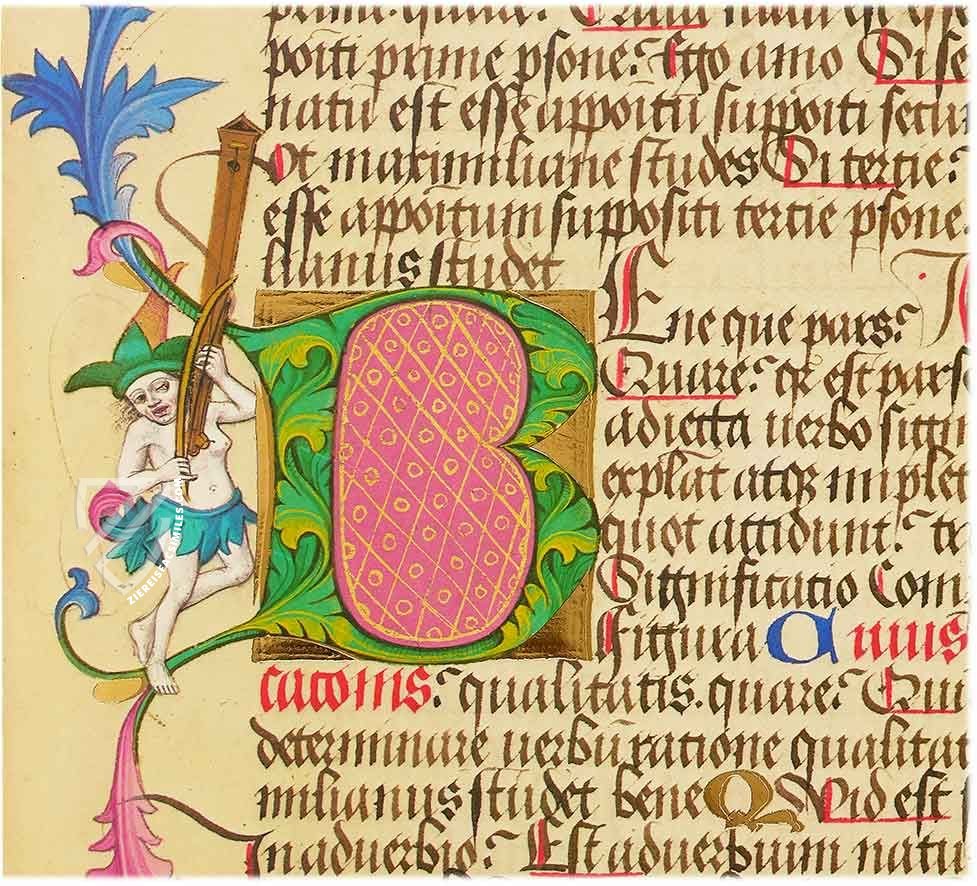 poiti prime psone? Ego amo Si se
natū est esse appoitū suppoiti secū
Vt maximiliane studes Si tertie?
esse appoitum suppositi tertie psone
lianus studet
BEne que pars?
Quare? qr est pars
adiecta uerbo
explāt atqz implet
quot accidunt? 
Significatio Com
figura Cuius
cacionis? qualitatis. quare? Qui
determinare uerbū ratione qualita
milianus studet bene Quid est
In aduerbio? Est aduerbium natu
ZIEREIS FACSIMILES.COM